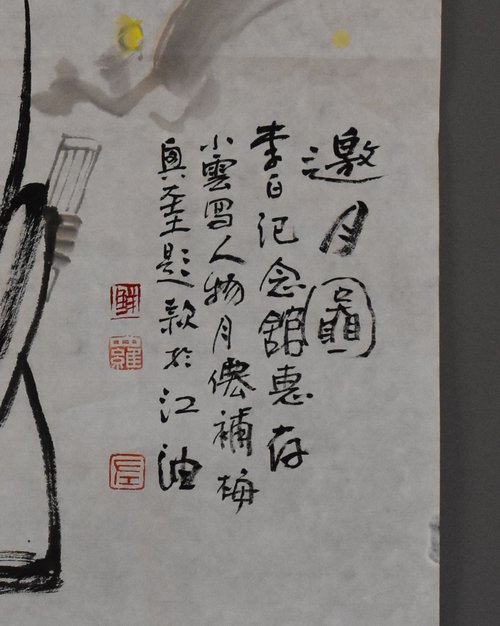 邀月圖
李白記念館惠存
小雲寫人物月僊補梅
題款於江油